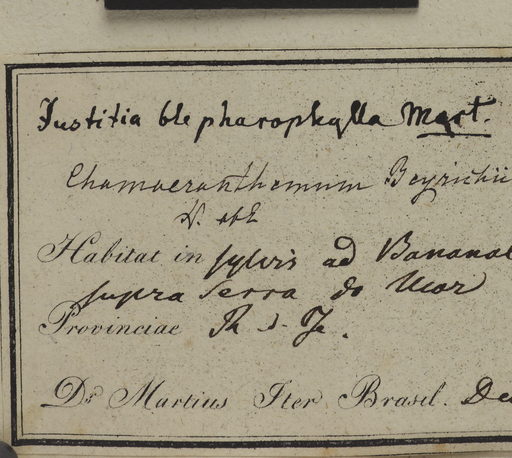 Justitia blepharophylla Mart.
Chamaeranthemum Beyrichii
N. abE
Habitat in sylvis ad Bananal
supra Serra do Mar
Provinciae
Dr Martius Iter Brasil. Dec